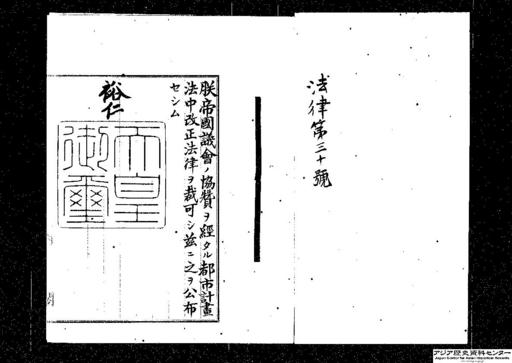 法律第三十號
朕帝國議會ノ協贊ヲ經タル都市計畫
法中改正法律ヲ裁可シ茲ニ之ヲ公布
セシム
裕仁
天皇
御璽
アジア歴史資料センター
Japan Center for Asian Historical Records